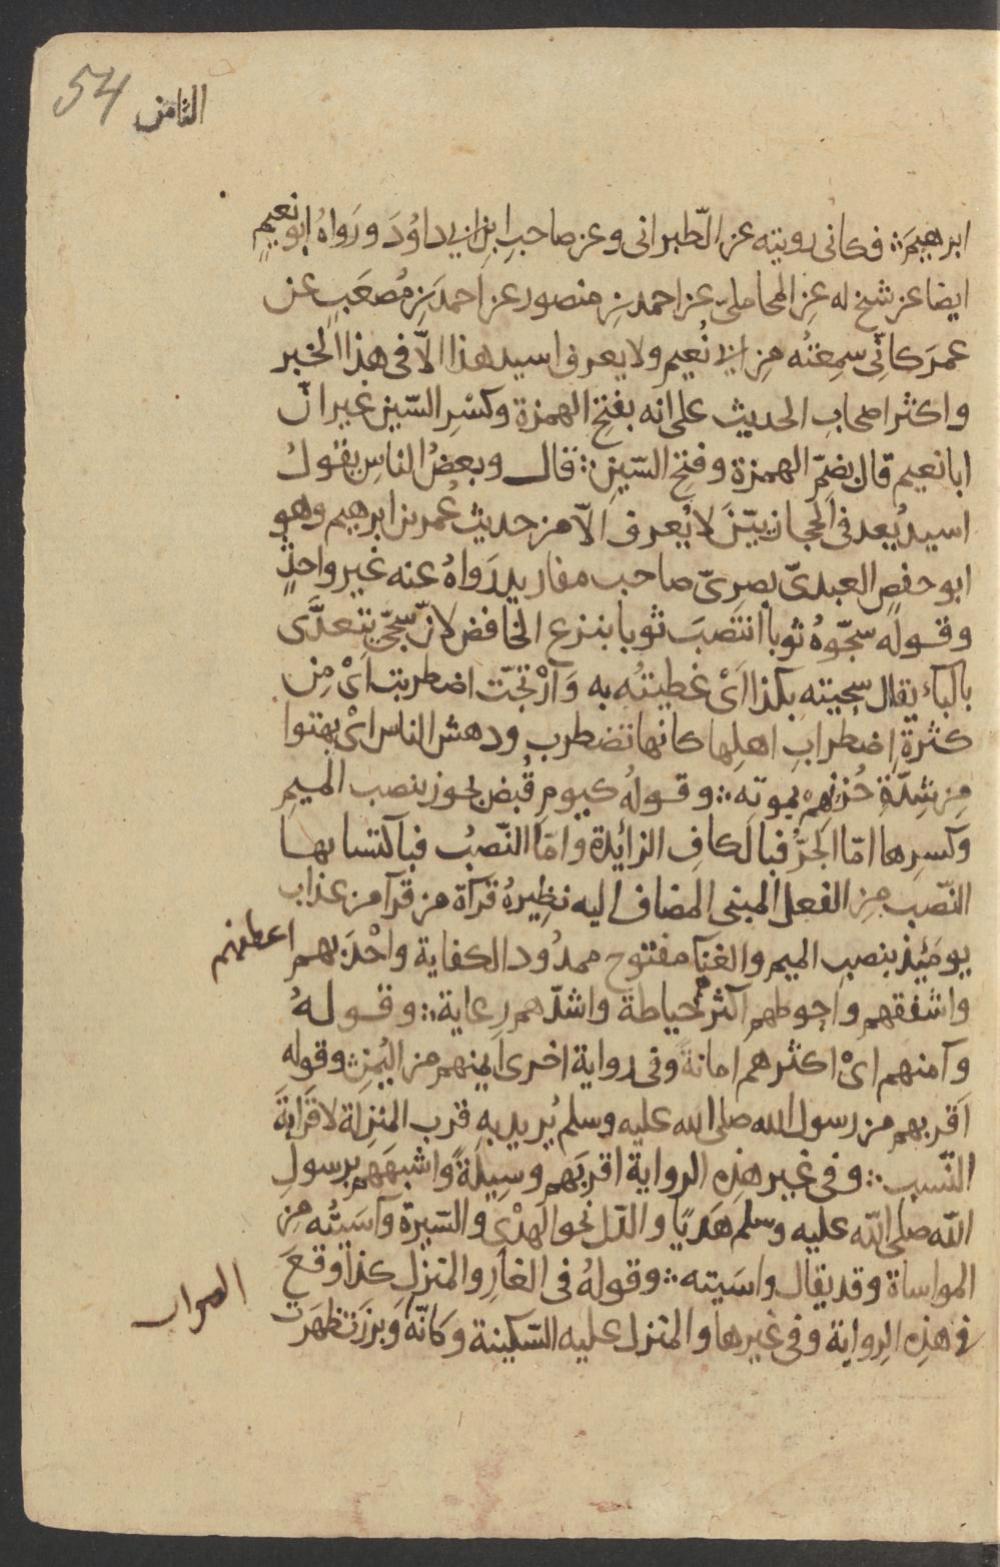 54
الثامن
ابرهيمَ ∴ فكانى رويته عن الطّبرانى وعن صاحبِ ابنِ ابى داوُدَ ورَواهُ ابو نعيمٍ
ايضا عن شيخ له عنِ المحاملىّ عن احمد بنِ منصور عن احمدَ بنِ مُصعَبٍ عن
عمرَ كانّى سمِعتُه مِن ابى نُعيم ولا يعرف اسيد هذا الاّ فى هذا الخبر
واكثر اصحابِ الحديث على انه بفتحِ الهمزة وكسْرِ السّين غير انّ
ابا نعيم قال بضمّ الهمزة وفتح السّينِ ∴ قال وبعضُ الناسِ يقولُ
اسيد يُعد فى الحجازيّينَ لا يُعرف الاّ من حديث عُمر بن ابرهيم وهو
ابو حفصٍ العبدىّ بصرىّ صاحب مفاريد رَواهُ عنه غير واحدٍ
وقوله سجّوهُ ثوبا انتَصبَ ثوبا بنزع الخافض لانّ سجّى يتعدَّى
بالباء يقال سجيته بكذا اىْ غطيتُه به وَارْتجّت اضطربت اىْ مِن
كثرةِ اضطرابِ اهلِها كانها تضطرب ودهش الناس اىْ بهتوا
مِن شِدّةِ حُزنِهِم بموته ∴ وقولهُ كيوم قُبض يجوز بنصب الميمِ
وكسرِها امّا الجرّ فبالكافِ الزائدة وامّا النّصبُ فباكتسابها
النّصب مِن الفعل المبنى المضاف اليه نظِيرهُ قرآة من قرآ من عذاب
يومَئِذ بنصب الميم والغنآ مفتوح ممدُود الكفاية واحْدَبهم اعطفهم
واشفقهم واحوطهم اكثرهم حياطة واشدّهم رعاية ∴ وقولهُ
وآمنهم اىْ اكثرهم امانةً وفى رواية اخرى ايمنهم من اليُمنِ ∴ وقوله
اَقربهم من رسول الله صلى الله عليه وسلم يُريد به قرب المنزلة لا قَرابَةَ
النّسبِ ∴ وفى غير هذِه الرواية اقربَهم وسِيلةً واشبهَهم برسولِ
الله صلى الله عليه وسلم هَديًا والدّل نحو الهدْىِ والسّيرة وآسَيتُه مِن
المواساة وقد يقال واسَيته ∴ وقولهُ فى الغارِ والمنزل كذا وقعَ
فى هذِه الروايةِ وفى غيرها والمنزل عليه السّكينة وكانّه وبرزَت ظهَرت
الصواب